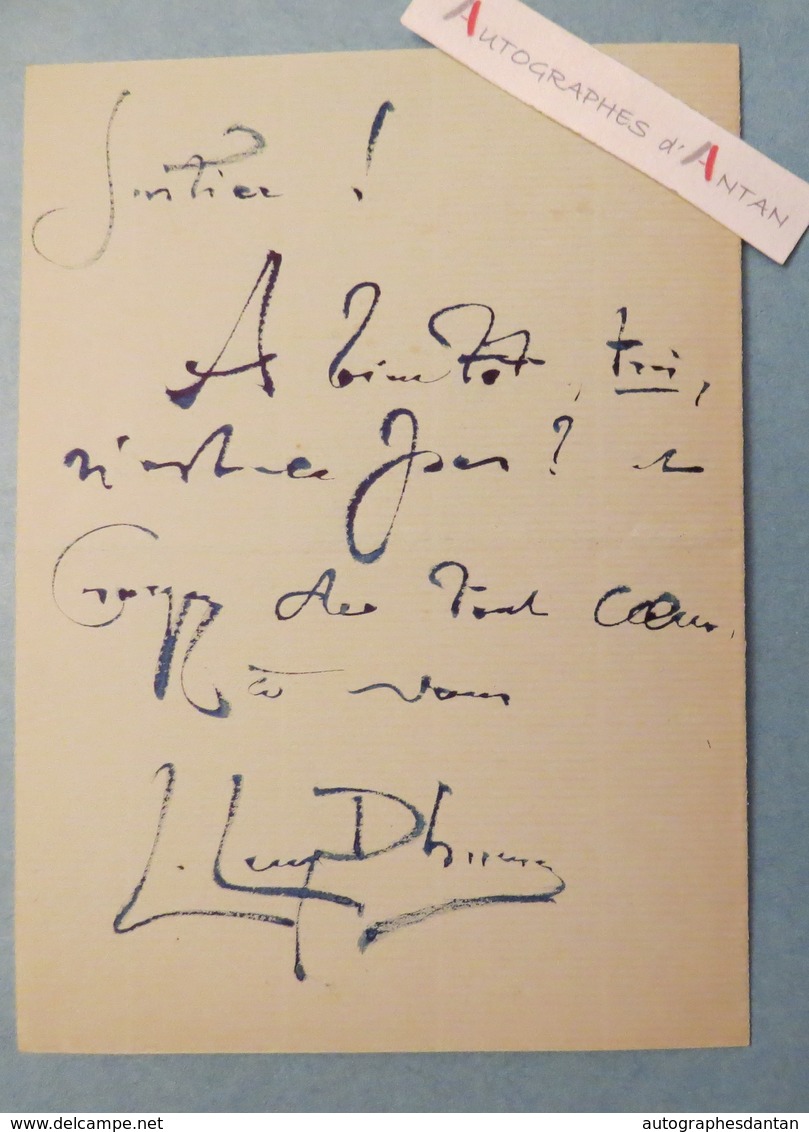 AUTOGRAPHES d'ANTAN
!
A bientôt,
n'est-ce pas ? et
de tout cœur
à vous
L. Lévy Dhurmer
delcampe.net
autographesdantan